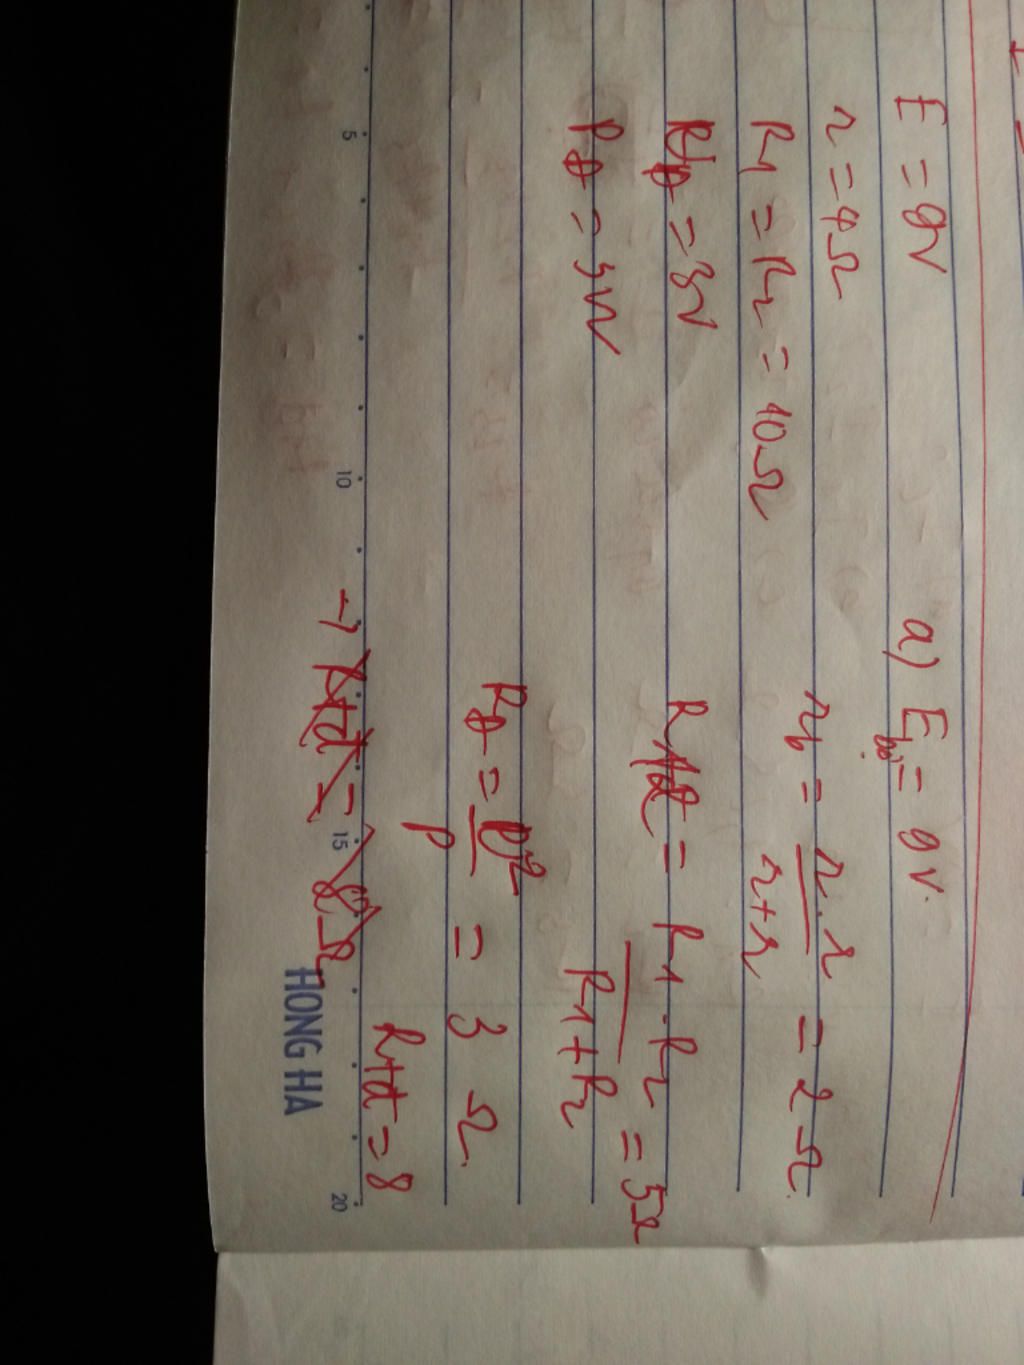 E = 9V
r = 4Ω
R1 = R2 = 10Ω
UĐ = 3V
PĐ = 3W
a) Ebộ = 9V.
rb = r.r / r+r = 2Ω.
R12 = R1.R2 / R1+R2 = 5Ω
RĐ = U² / P = 3 Ω.
Rtđ = 8
→ Rtđ = 8Ω
5 10 15 20
HONG HA